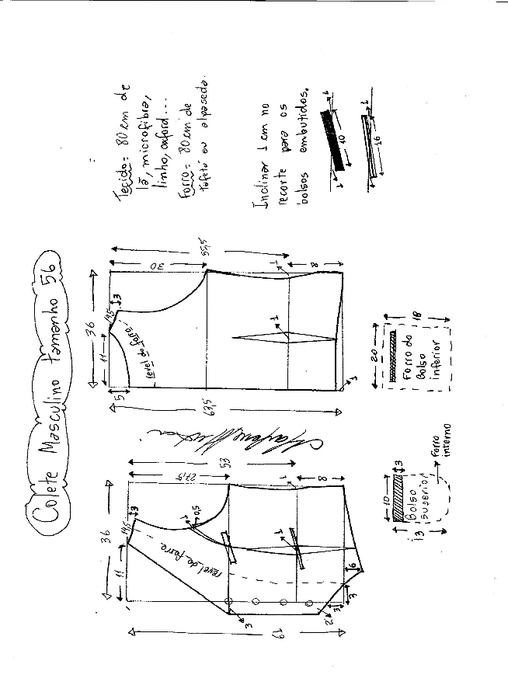 Colete Masculino Tamanho 56
Tecido: 80 cm de
lã, microfibra,
linho, oxford...
Forro: 80 cm de
tafetá ou alpaseda.
Inclinar 1 cm no
recorte para os
bolsos embutidos.
1
10
1
1
16
1
36
11
14,5
3
5
30
53,5
1
8
1
revel do forro
67,5
1
20
18
Forro do
Bolso
inferior
36
11
14,5
3
27,5
53
0,5
1
1
8
1
revel do forro
6
3
3
2
3
61
10
3
Bolso
superior
13
Forro
interno